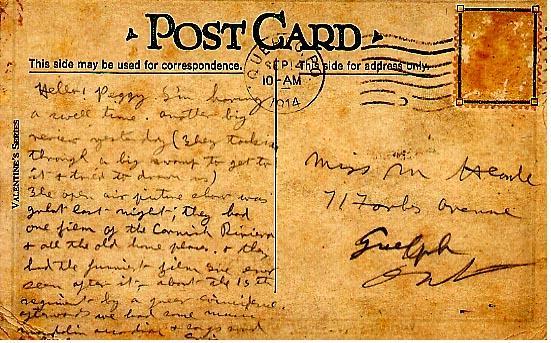 POST CARD
This side may be used for correspondence.
This side for address only.
QUE
SEP 14
10-AM
1914
VALENTINE'S SERIES
Hello Peggy I'm having
a swell time. another big
review yesterday (They took us
through a big swamp to get to
it & tried to drown us)
The open air picture show was
great last night; they had
one film of the Cornish Riviera
& all the old home places. & they
had the funniest film I've ever
seen after it, about the 15th
regiment by a queer coincidence.
afterwards we had some music
mandolin accordian & songs
Miss M Heard
71 Forbes avenue
Guelph
Ont